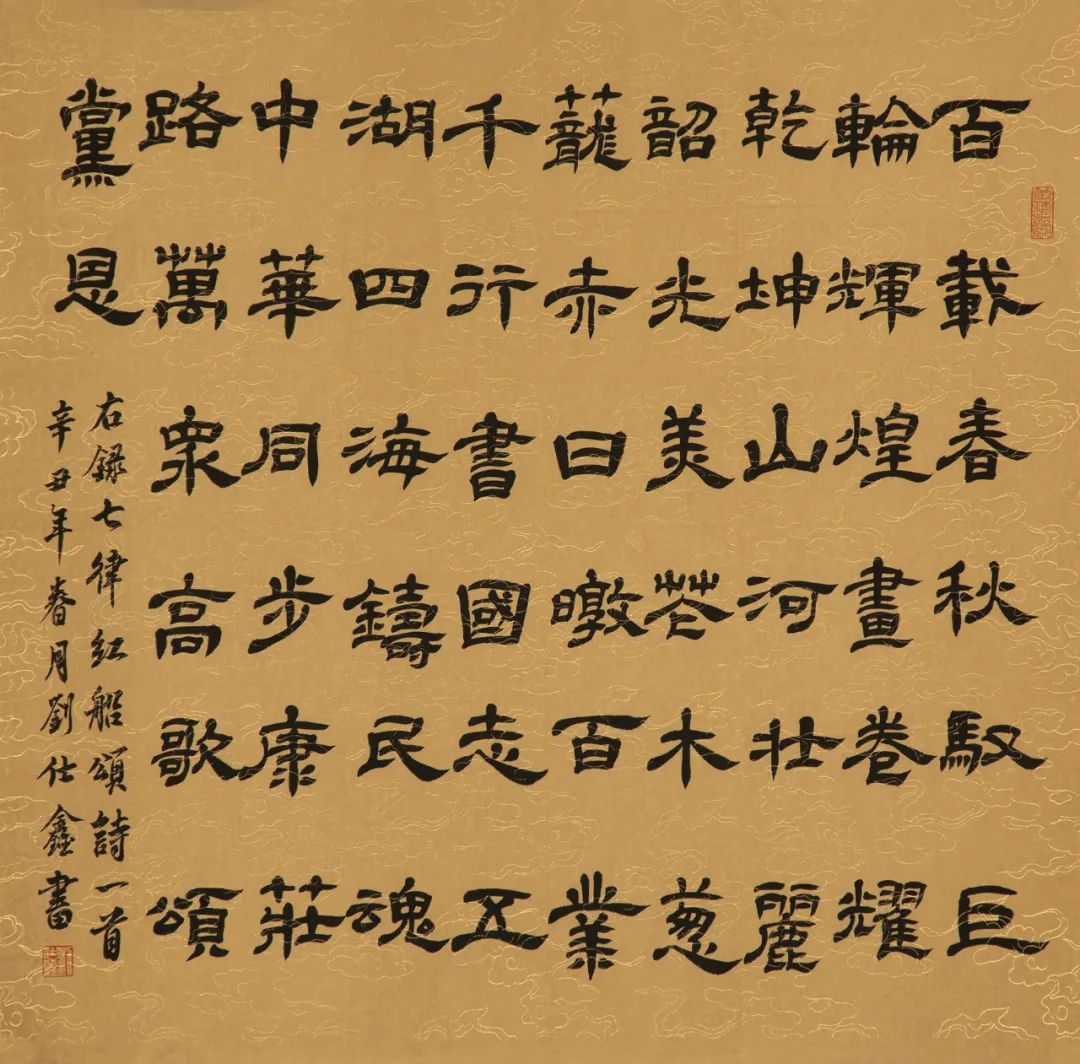 百載春秋馭巨
輪輝煌畫卷耀
乾坤山河壯麗
韶光美花木蔥
蘢赤日暾百業
千行書國志五
湖四海鑄民魂
中華同步康莊
路萬眾高歌頌
黨恩
右錄七律紅船頌詩一首
辛丑年春月劉仕鑫書